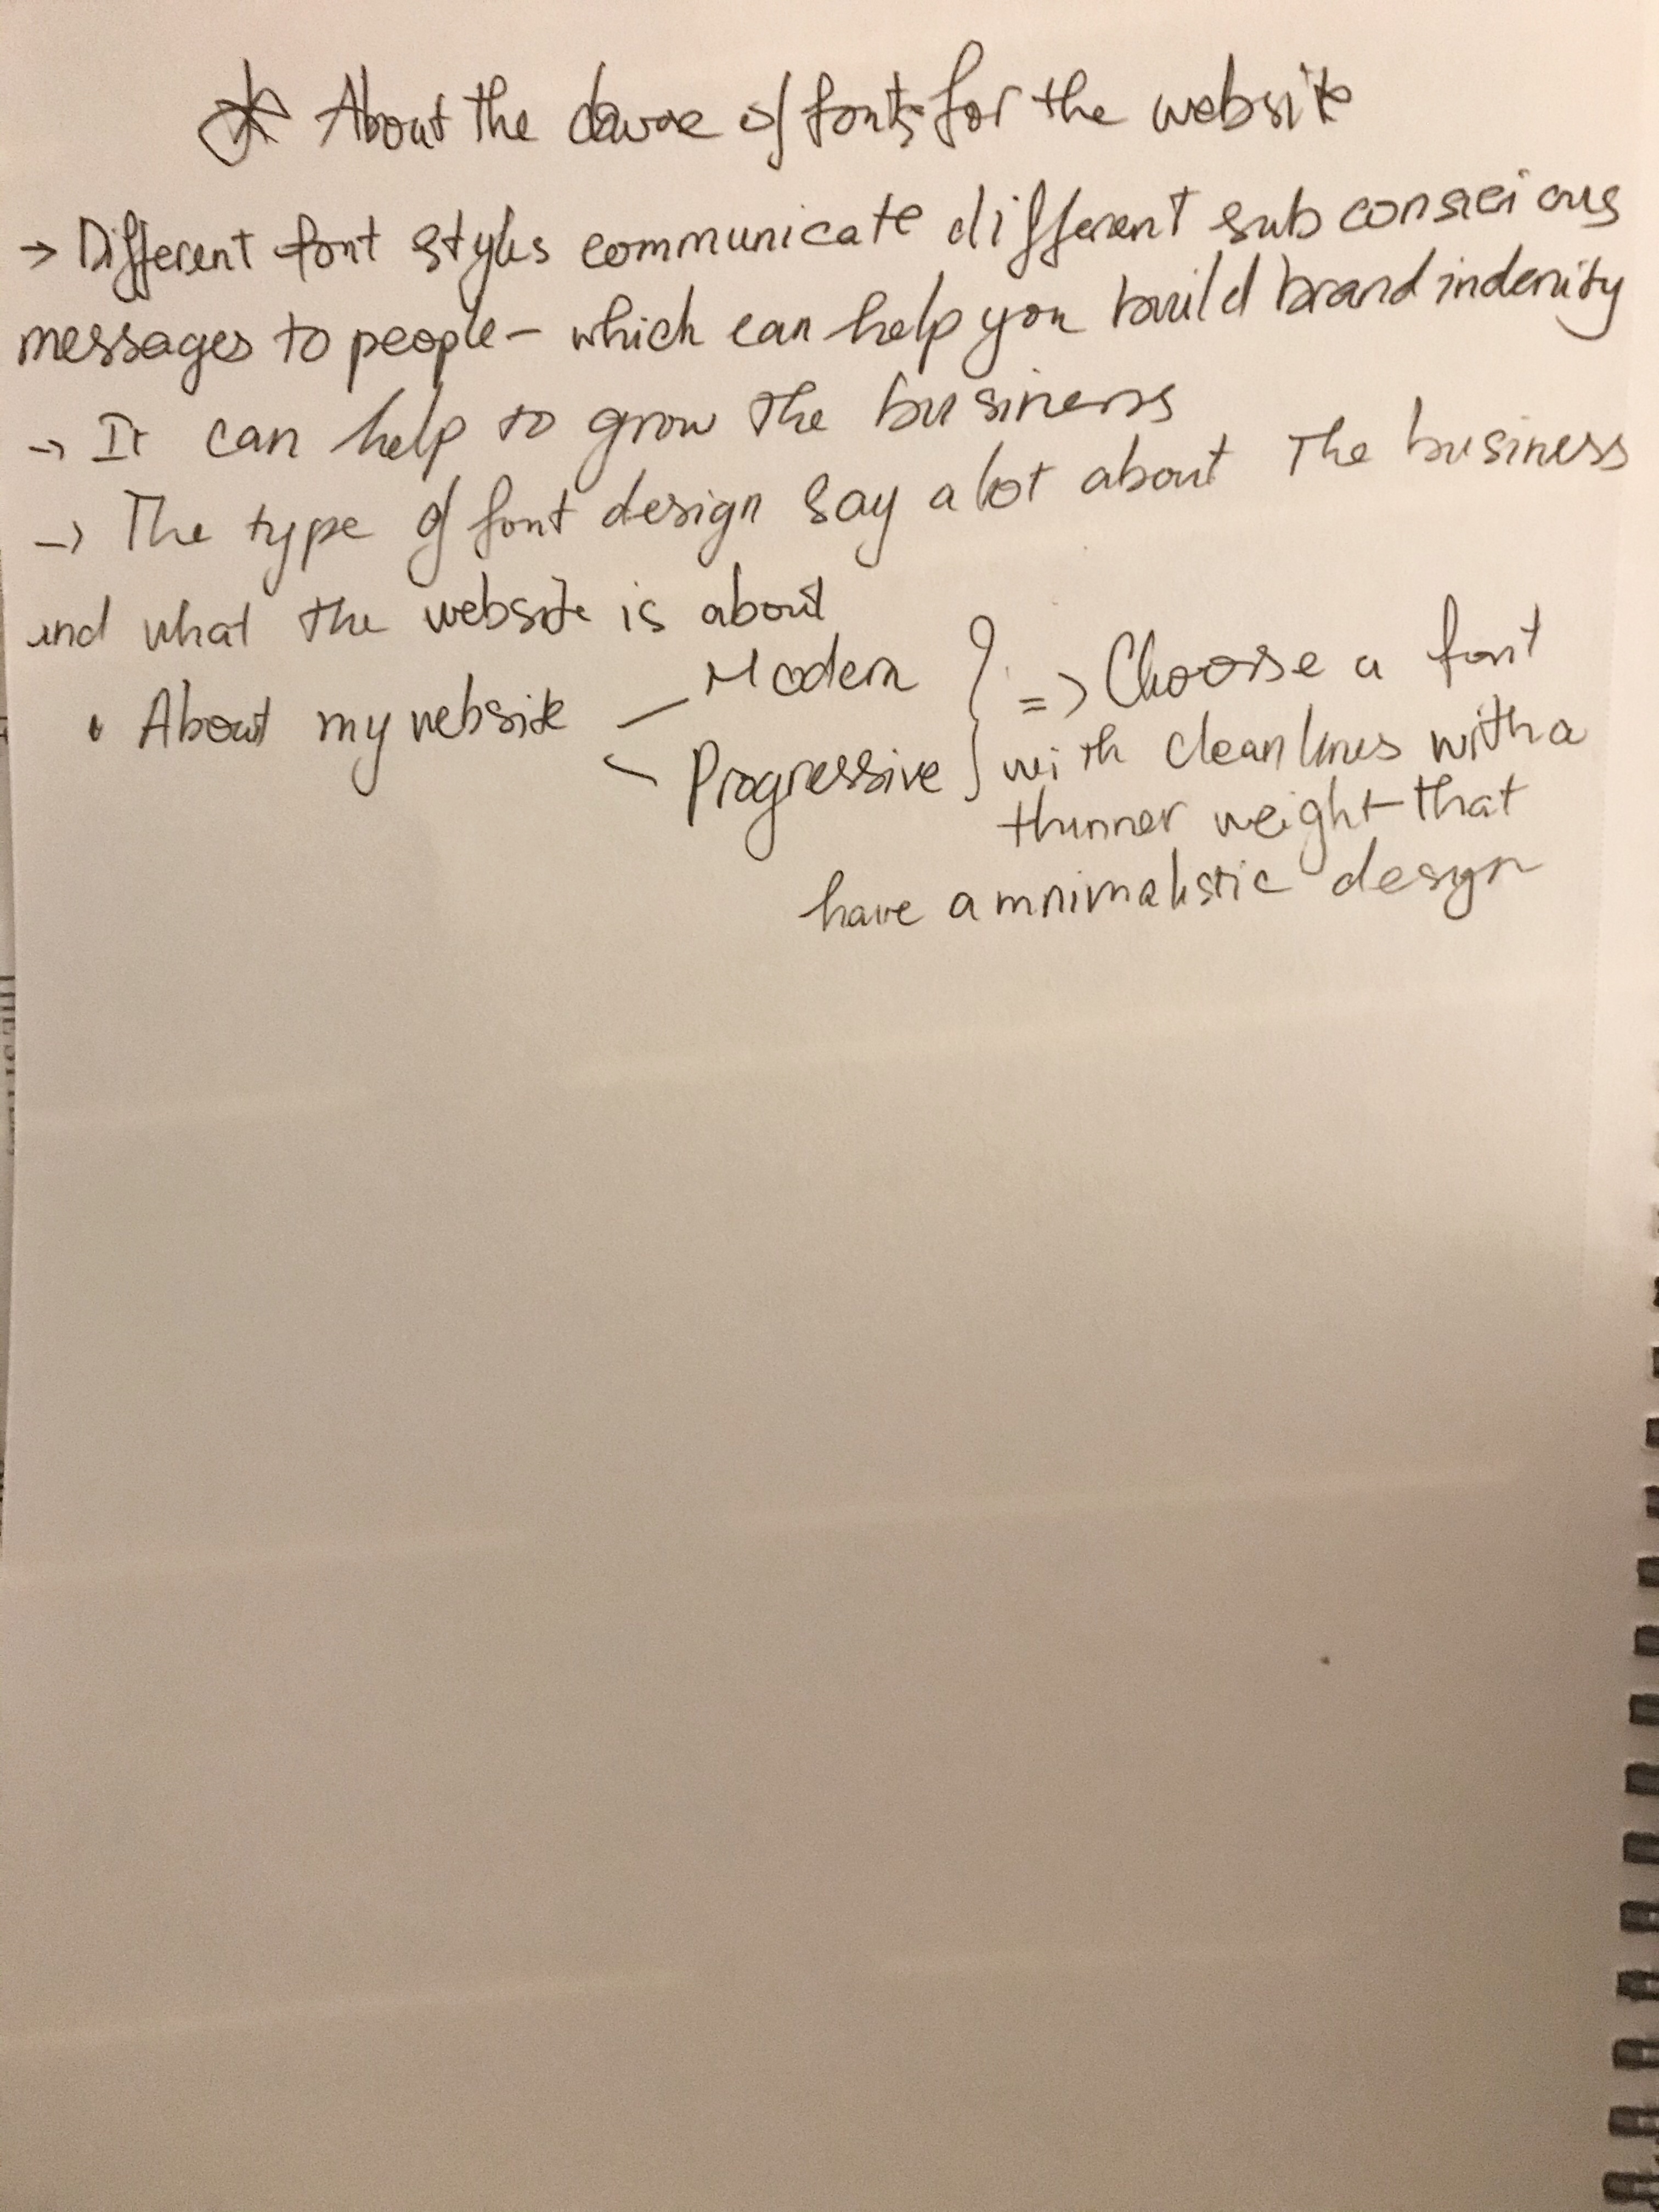 * About the of fonts for the website
→ Different font styles communicate different sub conscious
messages to people – which can help you build brand indenity
→ It can help to grow the business
→ The type of font design say a lot about the business
and what the website is about
• About my website — Modern } => Choosse a font
– Progressive } with clean lines with a
thinner weight that
have a mnimalistic design